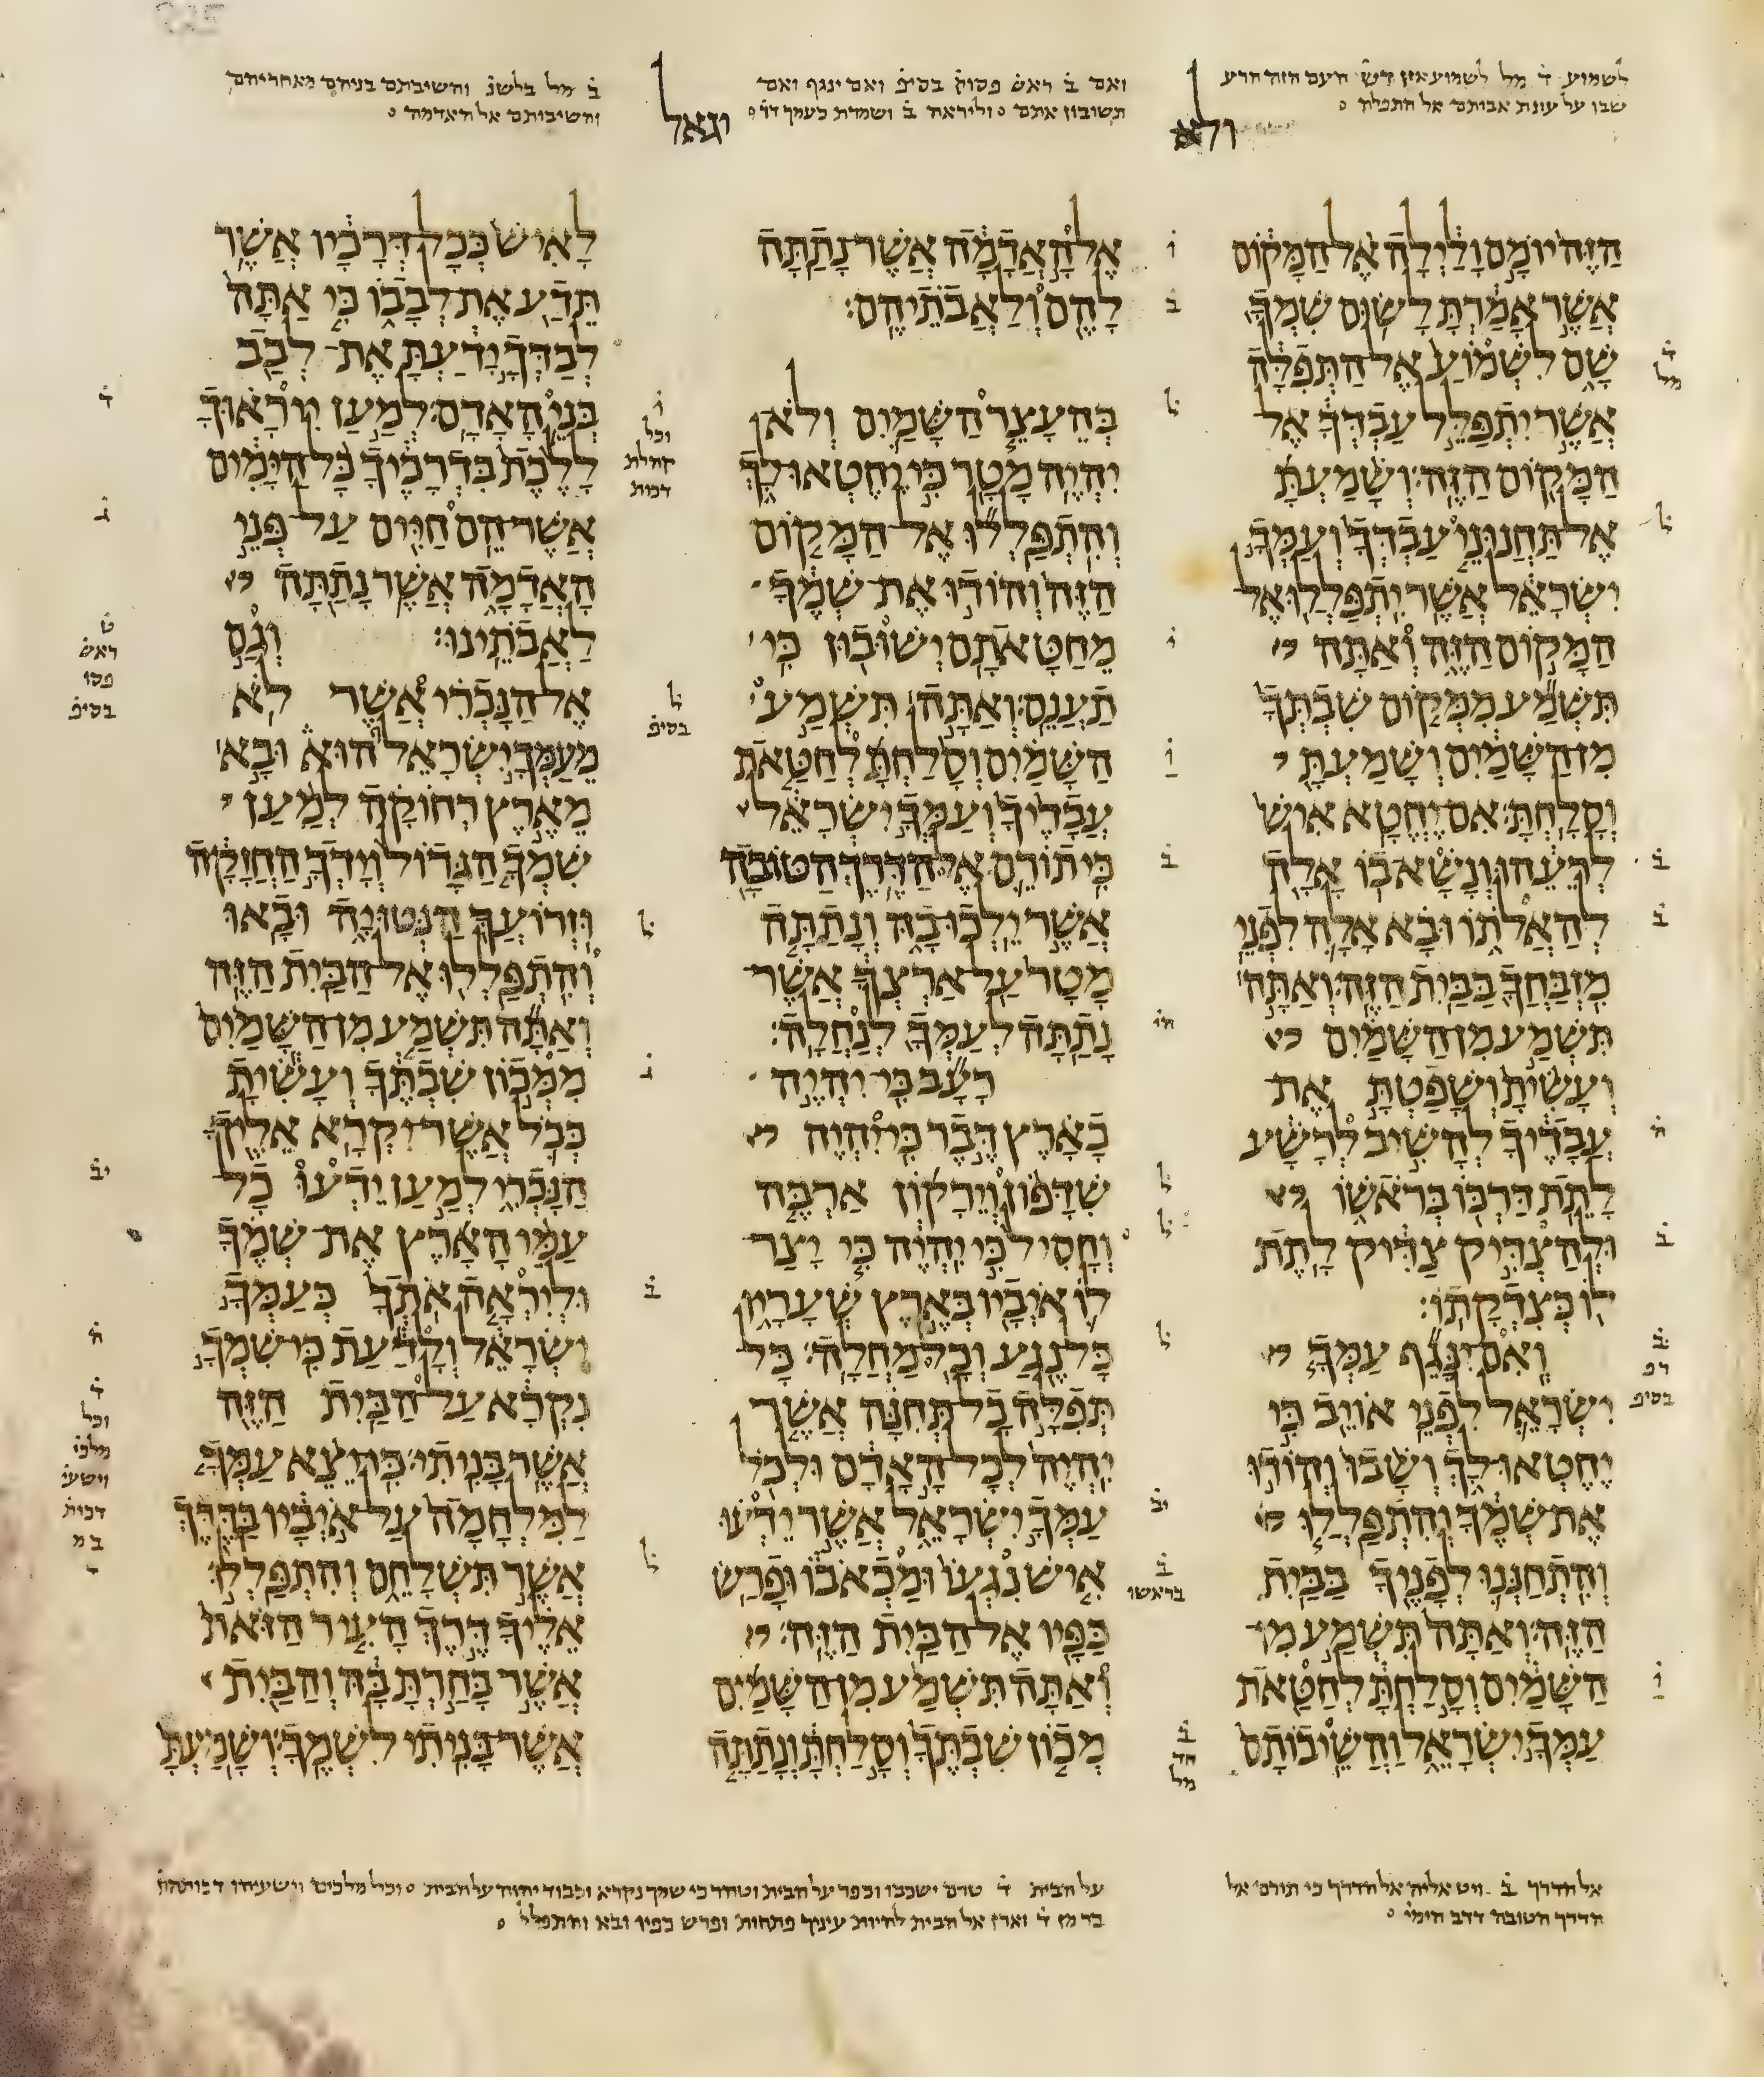 לשמוע ד מל לשמוע העם הזה הרע
שבו על עונת אבותם אל התפלה
ולא
ואם ב ראש פסוק בסיפ ואם ינגף ואם
תשובון אתם וליראה ב ושמדת כעמך
וגאל
ב מל בלשנ והשיבתם בניהם מאחריהם
והשיבותם אל האדמה
הזה יומם ולילה אל המקום
אשר אמרת לשום שמך
שם לשמוע אל התפלה
אשר יתפלל עבדך אל
המקום הזה: ושמעת
אל תחנוני עבדך ועמך
ישראל אשר יתפללו אל
המקום הזה ואתה
תשמע ממקום שבתך
מן השמים ושמעת
וסלחת: אם יחטא איש
לרעהו ונשא בו אלה
להאלתו ובא אלה לפני
מזבחך בבית הזה: ואתה
תשמע מן השמים
ועשית ושפטת את
עבדיך להשיב לרשע
לתת דרכו בראשו
ולהצדיק צדיק לתת
לו כצדקתו:
ואם ינגף עמך
ישראל לפני אויב כי
יחטאו לך ושבו והודו
את שמך והתפללו
והתחננו לפניך בבית
הזה: ואתה תשמע מן
השמים וסלחת לחטאת
עמך ישראל והשיבותם
אל האדמה אשר נתתה
להם ולאבתיהם:
בהעצר השמים ולא
יהיה מטר כי יחטאו לך
והתפללו אל המקום
הזה והודו את שמך
מחטאתם ישובון כי
תענם: ואתה תשמע
השמים וסלחת לחטאת
עבדיך ועמך ישראל
כי תורם אל הדרך הטובה
אשר ילכו בה ונתתה
מטר על ארצך אשר
נתתה לעמך לנחלה:
רעב כי יהיה
בארץ דבר כי יהיה
שדפון וירקון ארבה
וחסיל כי יהיה כי יצר
לו איביו בארץ שעריו
כל נגע וכל מחלה: כל
תפלה כל תחנה אשר
יהיה לכל האדם ולכל
עמך ישראל אשר ידעו
איש נגעו ומכאבו ופרש
כפיו אל הבית הזה:
ואתה תשמע מן השמים
מכון שבתך וסלחת ונתתה
לאיש ככל דרכיו אשר
תדע את לבבו כי אתה
לבדך ידעת את לבב
בני האדם: למען יראוך
ללכת בדרכיך כל הימים
אשר הם חיים על פני
האדמה אשר נתתה
לאבתינו: וגם
אל הנכרי אשר לא
מעמך ישראל הוא ובא
מארץ רחוקה למען
שמך הגדול וידך החזקה
וזרועך הנטויה ובאו
והתפללו אל הבית הזה
ואתה תשמע מן השמים
ממכון שבתך ועשית
ככל אשר יקרא אליך
הנכרי למען ידעו כל
עמי הארץ את שמך
וליראה אתך כעמך
ישראל ולדעת כי שמך
נקרא על הבית הזה
אשר בניתי: כי יצא עמך
למלחמה על איביו בדרך
אשר תשלחם והתפללו
אליך דרך העיר הזאת
אשר בחרת בה והבית
אשר בניתי לשמך: ושמעת
אל הדרך ב ויט אליה אל הדרך כי תורם אל
הדרך הטובה דדב הימי
על הבית ד טרם ישכבו וכפר על הבית וטהר כי שמך נקרא וכבוד יהוה על הבית וכל מלכים וישעיהו
אל הבית להיות עיניך פתחות ופרש כפיו ובא והתפלל